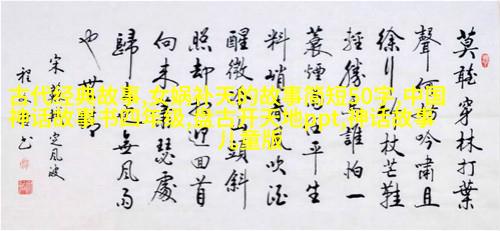 莫聽穿林打葉
聲何妨吟嘯且
徐行竹杖芒鞋
輕勝馬誰怕一
蓑煙雨任平生
料峭春風吹酒
醒微冷山頭斜
照却相迎回首
向来蕭瑟處
歸去也無風雨
也無
宋蘇軾定風波
古代经典故事,女娲补天的故事简短50字,中国
神话故事书四年级,盘古开天地ppt,神话故事
儿童版